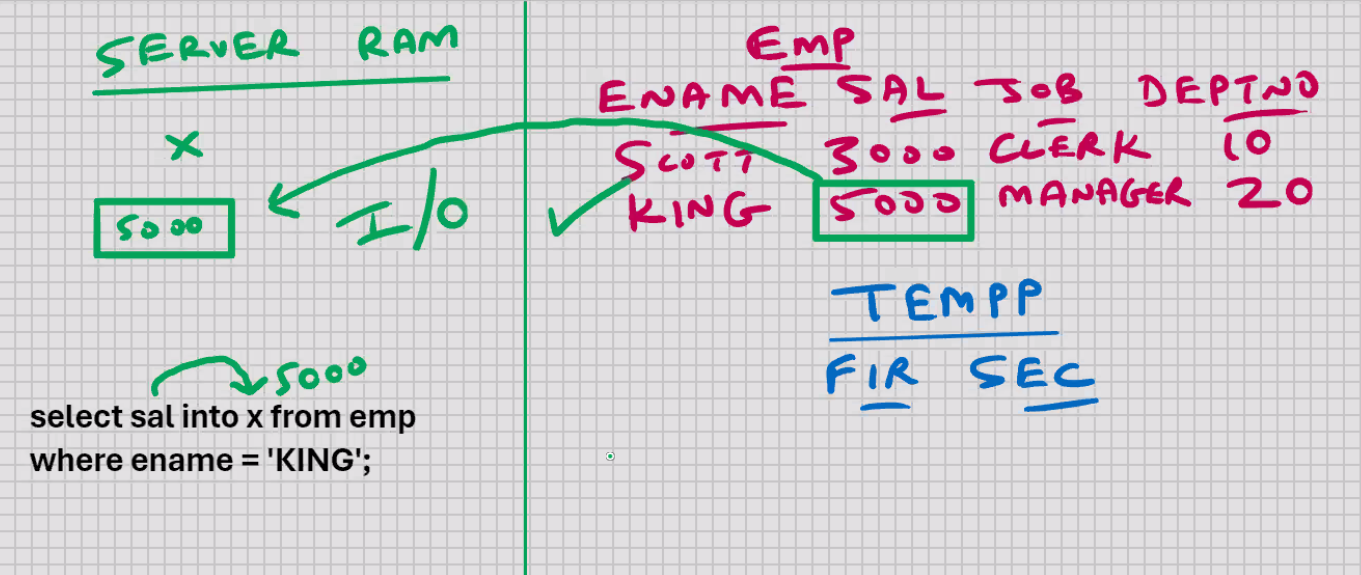 SERVER RAM
x
5000
I/O
5000
select sal into x from emp
where ename = 'KING';
Emp
ENAME SAL JOB DEPTNO
SCOTT 3000 CLERK 10
KING 5000 MANAGER 20
TEMPP
FIR SEC